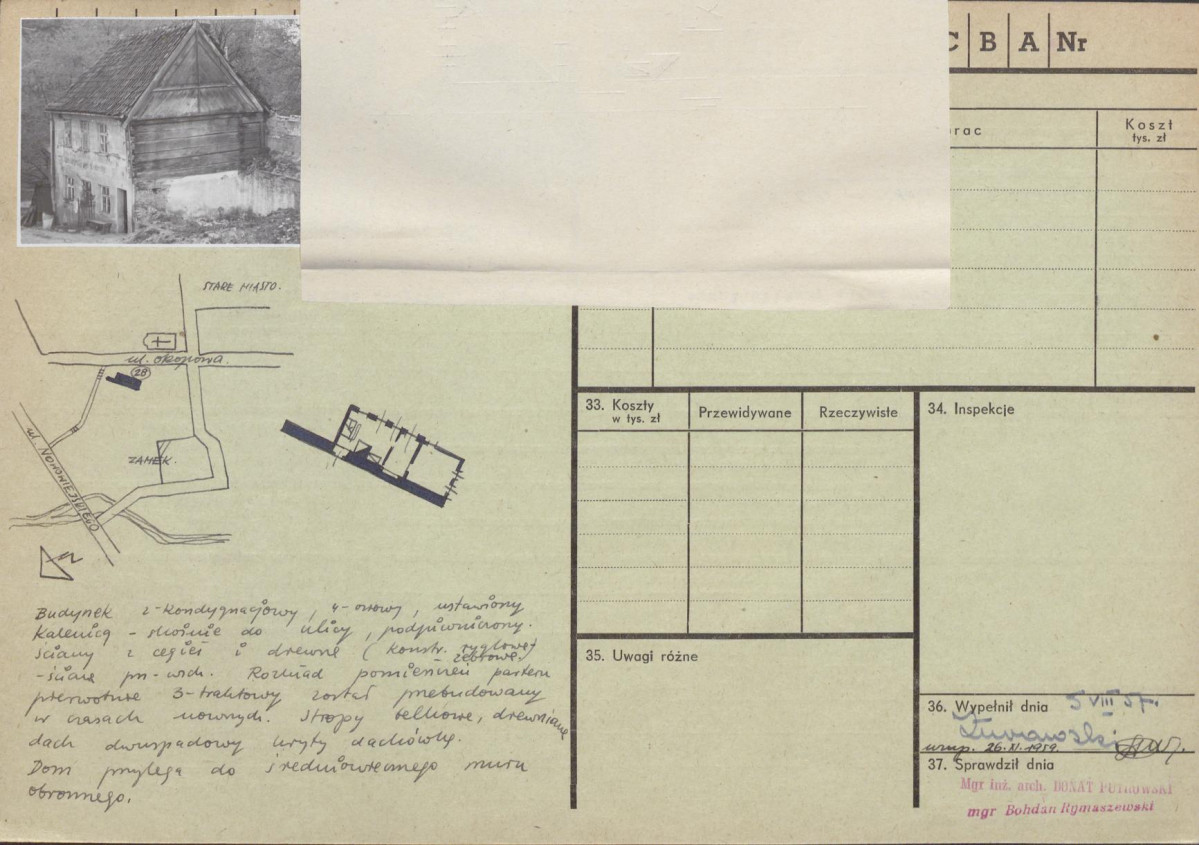 C B A Nr
rac
Koszt
tys. zł
STARE MIASTO.
ul. Okopowa.
28
ZAMEK.
ul. NOWOWIEJSKIEGO
33. Koszty
w tys. zł
Przewidywane
Rzeczywiste
34. Inspekcje
Budynek 2-kondygnacjowy, 4-osiowy, ustawiony
Kalenicą - skośnie do ulicy, podpiwniczony.
Ściany z cegieł i drewne (konstr. ryglowe)
zrębowe.
-ściana pn-wsch. Rozkład pomieszczeń parteru
pierwotnie 3-traktowy został przebudowany
w czasach nowszych. Stropy belkowe, drewniane
dach dwuspadowy kryty dachówką.
Dom przylega do średniowiecznego muru
obronnego.
35. Uwagi różne
36. Wypełnił dnia 5 VIII 57.
uzup. 26.XI.1959.
37. Sprawdził dnia
Mgr inż. arch. DONAT PUTKOWSKI
mgr Bohdan Rymaszewski